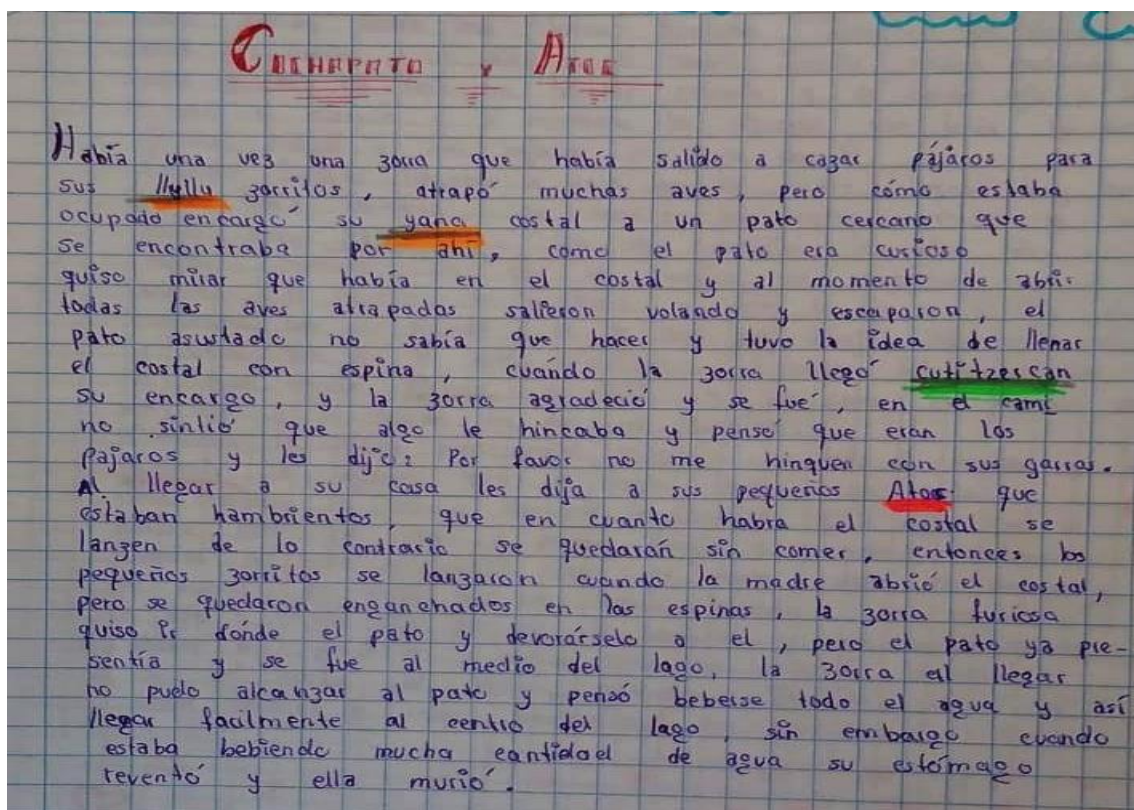 COCHAPATO Y ATOC
Había una vez una zorra que había salido a cazar pájaros para
sus llullu zorritos, atrapó muchas aves, pero cómo estaba
ocupado encargó su yana costal a un pato cercano que
se encontraba por ahí, como el pato era curioso
quiso mirar que había en el costal y al momento de abrir
todas las aves atrapadas salieron volando y escaparon, el
pato asustado no sabía que hacer y tuvo la idea de llenar
el costal con espina, cuándo la zorra llegó cutitzerçan
su encargo, y la zorra agradeció y se fué, en el cami
no sintió que algo le hincaba y pensó que eran los
pajaros y les dijo: Por favor no me hinquen con sus garras.
Al llegar a su casa les dija a sus pequeños Atoc que
estaban hambrientos, que en cuanto habra el costal se
lanzen de lo contrario se quedarán sin comer, entonces los
pequeños zorritos se lanzaron cuando la madre abrió el costal,
pero se quedaron enganchados en las espinas, la zorra furiosa
quiso ir dónde el pato y devorárselo a el, pero el pato ya pre-
sentía y se fue al medio del lago, la zorra al llegar
no pudo alcanzar al pato y pensó beberse todo el agua y así
llegar facilmente al centro del lago, sin embargo cuando
estaba bebiendo mucha cantidad de agua su estómago
reventó y ella murió.